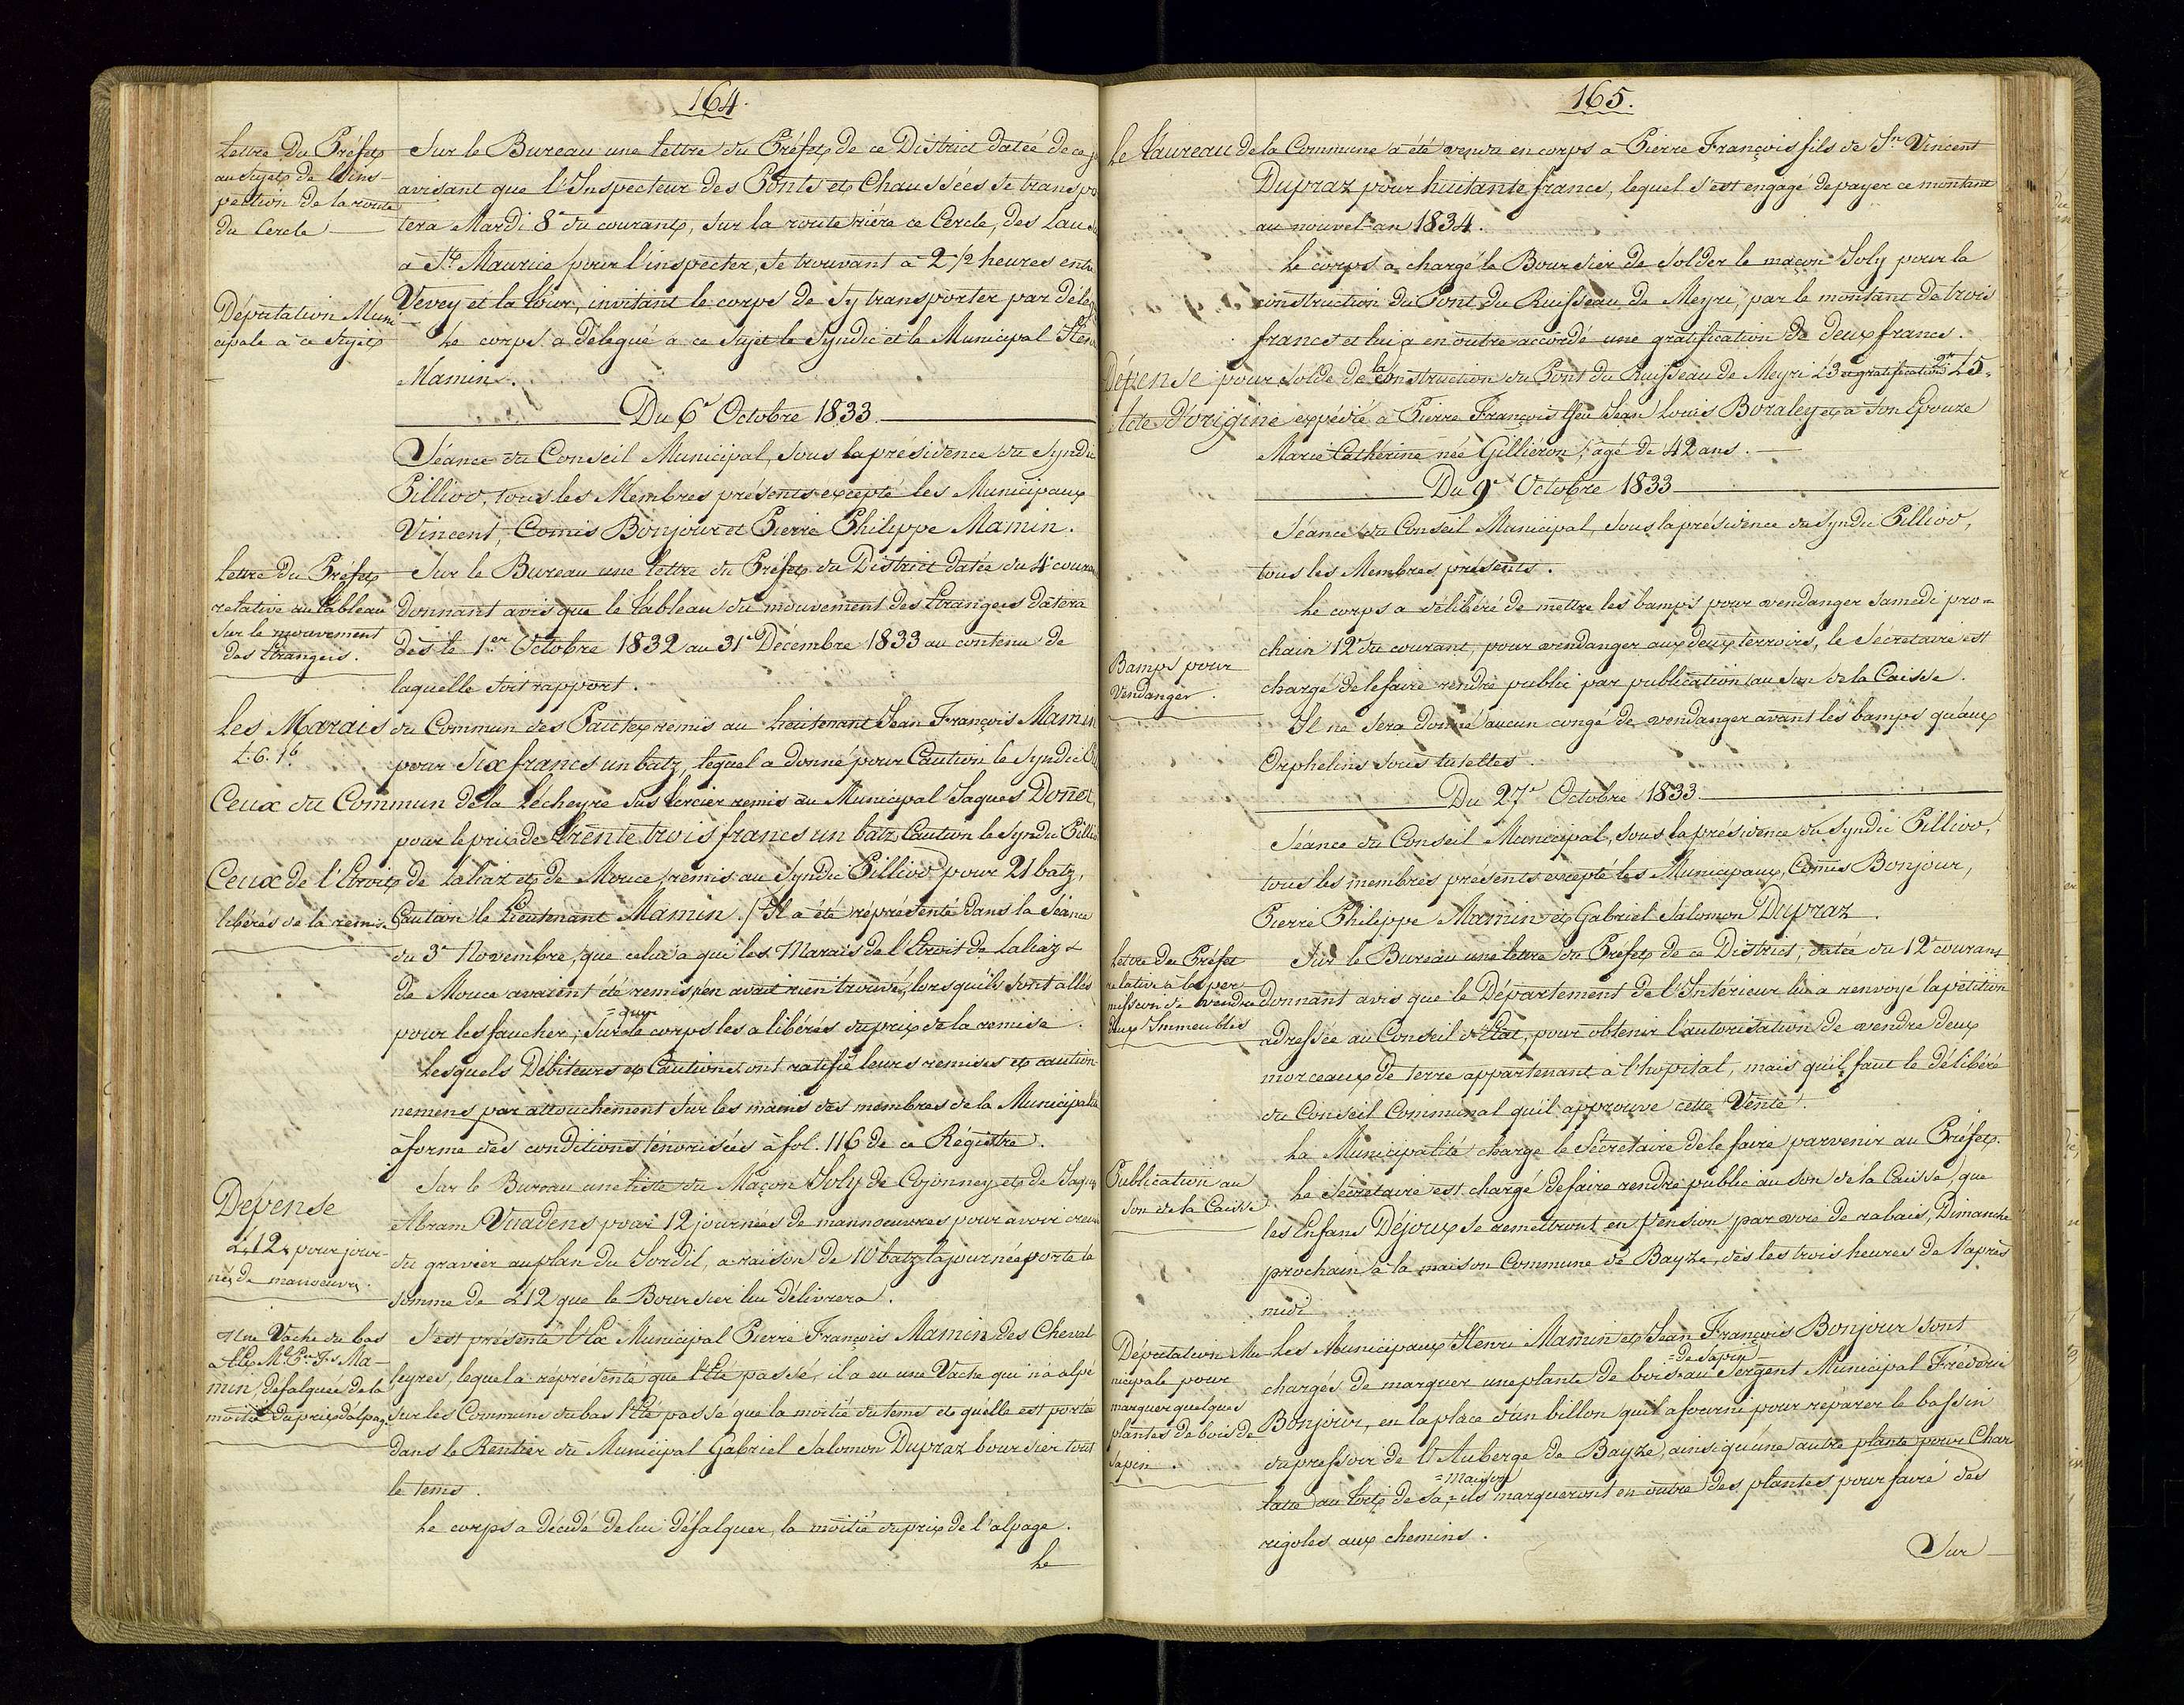 164.
Lettre du Préfet
au sujet de l'ins-
pection de la route
du Cercle
Sur le Bureau une lettre du Préfet de ce District datée de ce
avisant que l'Inspecteur des Ponts et Chaussées se transpo
tera Mardi 8e du courant, sur la route riére ce Cercle, des
à St. Maurice pour l'inspecter, se trouvant à 2 1/2 heures entre
Vevey et la Tour, invitant le corps de s'y transporter par déleg
Députation Muni-
cipale à ce sujet
Le corps a délegué à ce sujet le Syndic et le Municipal Henri
Mamin.
Du 6e Octobre 1833.
Séance du Conseil Municipal, sous la présidence du Syndic
Pilliod, tous les Membres présents excepté les Municipaux
Vincent, Comis Bonjour et Pierre Philippe Mamin.
Lettre du Préfet
relative au tableau
sur le mouvement
des Etrangers.
Sur le Bureau une lettre du Préfet du District datée du 4e courant
donnant avis que le tableau du mouvement des Etrangers datera
dès le 1er Octobre 1832 au 31e Décembre 1833 au contenu de
laquelle soit rapport.
Les Marais du Commun des remis au Lieutenant Jean François Mamin
L. 6. 1b.
pour Six francs un batz, lequel a donné pour Caution le Syndic
Ceux du Commun de la Lécheyre sus remis au Municipal Jaques Donet,
pour le prix de trente trois francs un batz, Caution le Syndic Pilliod
Ceux de l'Etroit de Laliaz et de Mouce, remis au Syndic Pilliod pour 21 batz,
libérés de la remise
Caution le Lieutenant Mamin. / Il a été réprésenté dans la Séance
du 3e Novembre, que celui à qui les Marais de l'Etroit de Laliaz &
de Mouce avaient été remis, n'en avait rien trouvé, lorsqu'ils sont allés
pour les faucher, Sur =quoi le corps les a libérés du prix de la remise.
Lesquels Débiteurs et Cautions ont ratifié leurs remises et caution-
nemens par attouchement sur les mains des membres de la Municipalité
à forme des conditions ténorisées à fol. 116 de ce Régistre.
Dépense
L. 12. pour jour-
nées de manoeuvre.
Sur le Bureau une liste du Maçon Joly de Cojonney et de Jaques
Abram Vuadens pour 12 journées de mannoeuvres pour avoir creusé
du gravier au plan du Sordil, à raison de 10 batz la journée porte la
somme de L 12 que le Boursier lui délivrera.
Une Vache du bas
à l'Ex Ml. Pre. Fs. Ma-
min, défalquée de la
moitié du prix d'alpage
S'est présenté l'Ex Municipal Pierre François Mamin, des Cheval-
leyres, lequel a réprésenté que l'Eté passé, il a eu une Vache qui n'a alpé
sur les Communs du bas l'Eté passé que la moitié du tems et quelle est portée
dans le Rentier du Municipal Gabriel Salomon Dupraz boursier tout
le tems.
Le corps a décidé de lui défalquer, la moitié du prix de l'alpage.
Le
165.
Le Taureau de la Commune a été vendu en corps à Pierre François fils de Sn Vincent
Dupraz pour huitante francs, lequel s'est engagé de payer ce montant
au nouvel-an 1834.
Le corps a chargé le Boursier de solder le maçon Joly pour la
construction du Pont du Ruisseau de Meyri, par le montant de trois
francs et lui a en outre accordé une gratification de deux francs.
Dépense pour solde de la construction du Pont du Ruisseau de Meyri L 3 et gratification 2fr L 5.
Acte d'origine expédié à Pierre François feu Jean Louis Boraley et à son Epouze
Marie Cathérine née Gilliéron, agé de 42 ans.
Du 9e Octobre 1833
Séance du Conseil Municipal, sous la présidence du Syndic Pilliod,
tous les Membres présents.
Bamps pour
Vendanger.
Le corps a délibéré de mettre les bamps pour vendanger samedi pro=
chain 12e du courant, pour vendanger aux deux terroirs, le Sécretaire est
chargé de le faire rendre public par publication au son de la Caisse.
Il ne sera donné aucun congé de vendanger avant les bamps qu'aux
Orphelins sous tutelles.
Du 27e Octobre 1833.
Séance du Conseil Municipal, sous la présidence du Syndic Pilliod,
tous les membres présents excepté les Municipaux, Comis Bonjour,
Pierre Philippe Mamin et Gabriel Salomon Dupraz.
Lettre du Préfet
relative à la per-
mission de vendre
deux Immeubles
Sur le Bureau une lettre du Préfet de ce District, datée du 12e courant
donnant avis que le Département de l'Intérieur lui a renvoyé la pétition
adressée au Conseil d'Etat, pour obtenir l'autorisation de vendre deux
morceaux de terre appartenant à l'hopital, mais qu'il faut le délibéré
du Conseil Communal qu'il approuve cette Vente.
La Municipalité charge le Sécretaire de le faire parvenir au Préfet.
Publication au
Son de la Caisse
Le Sécretaire est chargé de faire rendre public au son de la Caisse, que
les Enfans Déjoux se remettront en pension par voie de rabais, Dimanche
prochain à la maison Commune de Bayze, dès les trois heures de l'après
midi
Députation Mu-
nicipale pour
marquer quelques
plantes de bois de
sapin.
Les Municipaux Henri Mamin et Jean François Bonjour sont
chargés de marquer une plante de bois =de sapin au Sergent Municipal Fréderic
Bonjour, en la place d'un billon qu'il a fourni pour réparer le bassin
du pressoir de l'Auberge de Bayze, ainsi qu'une autre plante pour Char
au toit de sa =maison ils marqueront en outre des plantes pour faire des
rigoles aux chemins.
Sur